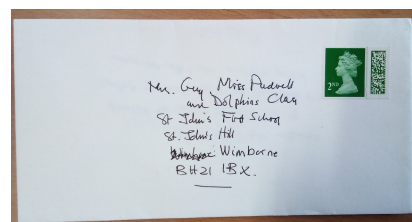 Mrs. Guy Miss Audwell
and Dolphins Class
St John's First School
St. John's Hill
Wimborne
BH21 1BX.
2ND